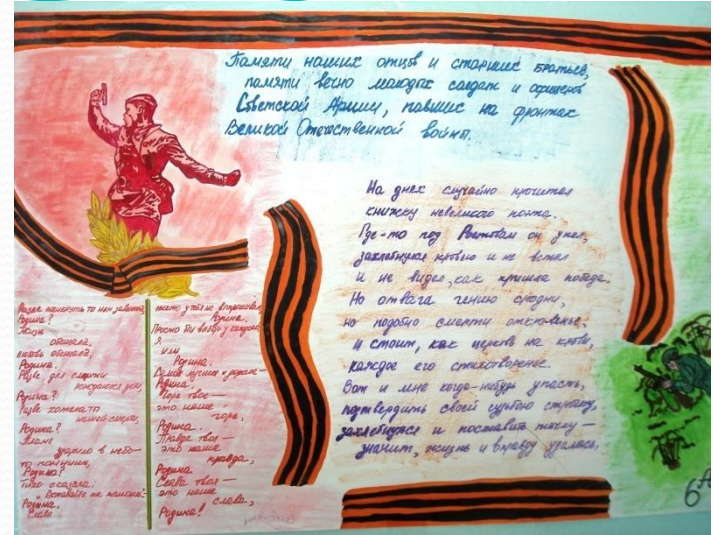 Памяти наших отцов и старших братьев,
памяти вечно молодых солдат и офицеров
Советской Армии, павших на фронтах
Великой Отечественной войны.
На днях случайно прочитал
книжку невеликого поэта.
Где-то под Ростовом он упал,
захлебнулся кровью и не встал
и не видел, как пришла победа.
Но отвага гению сродни,
но подобно смерти отчаянье,
и стоит, как церковь на крови,
каждое его стихотворенье.
Вот и мне когда-нибудь упасть,
подтвердить своей судьбою строчку,
захлебнуться и поставить точку —
значит, жизнь и вправду удалась.
Разве погибнуть ты нам завещала,
Родина?
Жизнь
обещала,
любовь обещала,
Родина.
Разве для смерти
рождаются дети,
Родина?
Разве хотела ты
нашей смерти,
Родина?
Пламя
ударило в небо —
ты помнишь,
Родина?
Тихо сказала:
"Вставайте на помощь" —
Родина.
Славы
никто у тебя не выпрашивал,
Родина.
Просто был выбор у каждого:
Я
или
Родина.
Самое лучшее и дорогое —
Родина.
Горе твое —
это наше
горе,
Родина.
Правда твоя —
это наша
правда,
Родина.
Слава твоя —
это наша
слава,
Родина!
6А